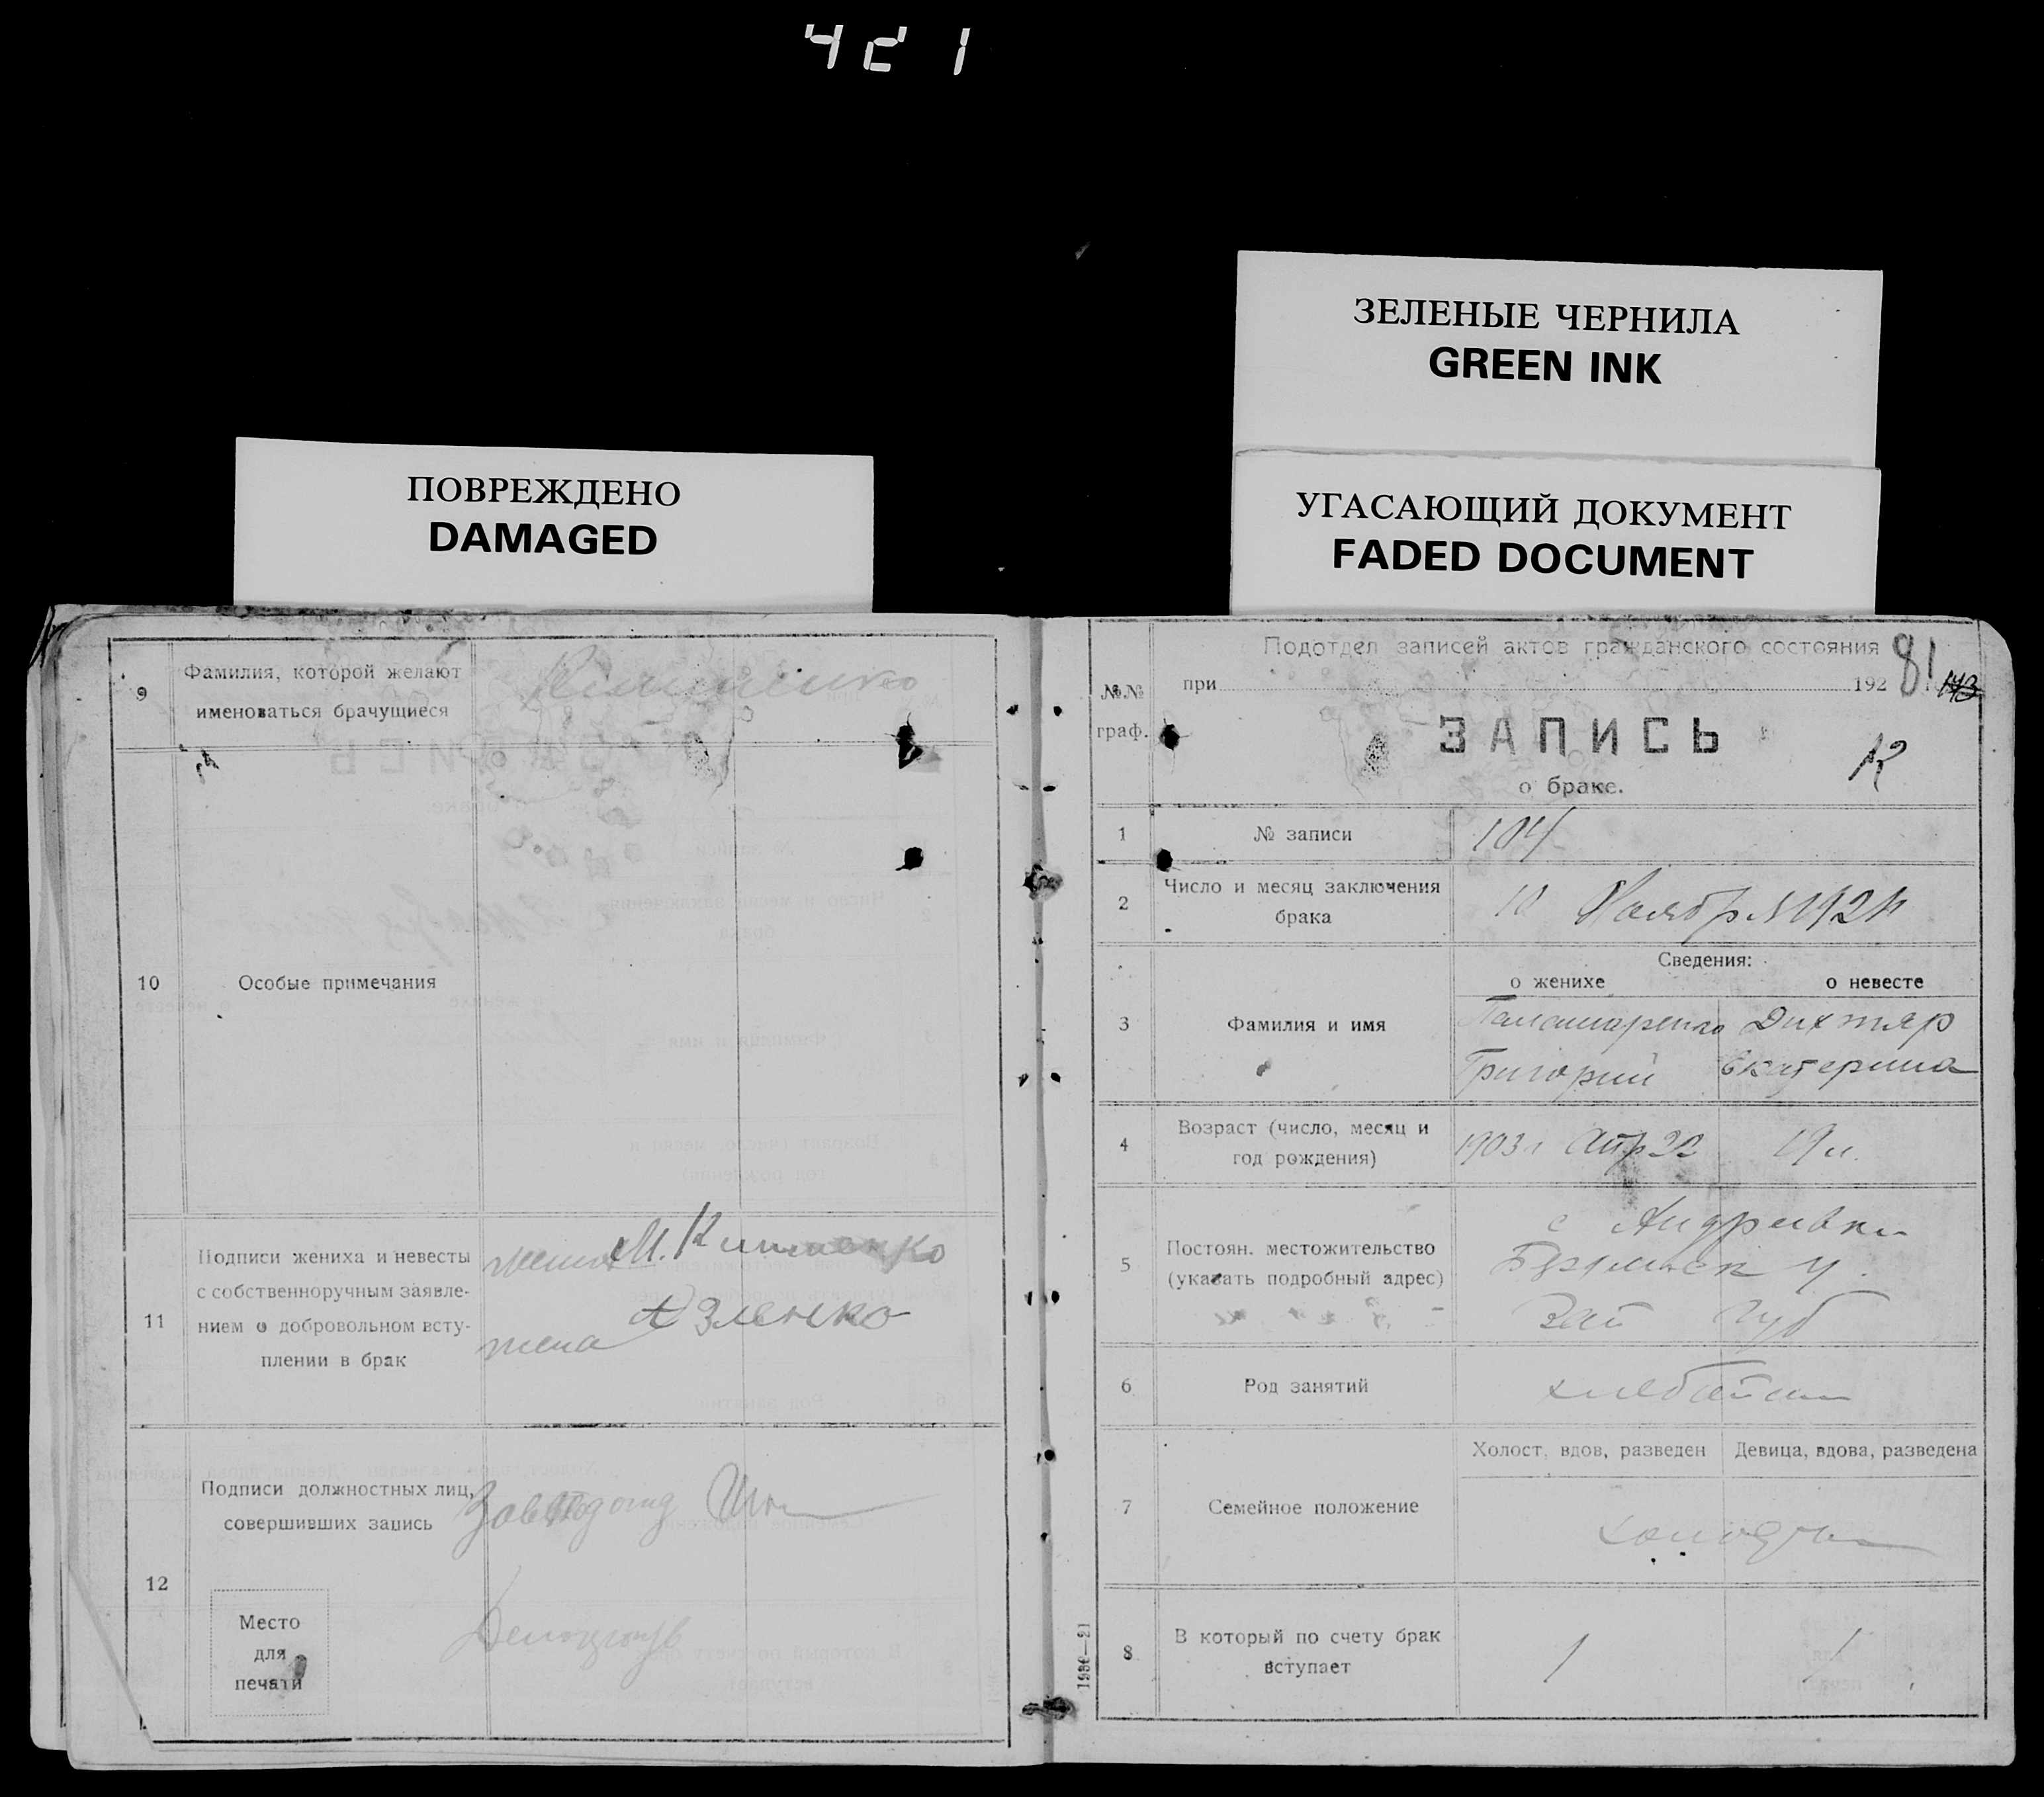 421
ЗЕЛЕНЫЕ ЧЕРНИЛА
GREEN INK
ПОВРЕЖДЕНО
DAMAGED
УГАСАЮЩИЙ ДОКУМЕНТ
FADED DOCUMENT
9
Фамилия, которой желают
именоваться брачущиеся
10
Особые примечания
11
Подписи жениха и невесты
с собственноручным заявле-
нием о добровольном всту-
плении в брак
жених М.
жена Зленко
12
Подписи должностных лиц,
совершивших запись
Место
для
печати
Подотдел записей актов гражданского состояния
81
№№
граф.
при 192
143
ЗАПИСЬ
о браке.
1
№ записи
104
2
Число и месяц заключения
брака
10 Ноября
Сведения:
о женихе
о невесте
3
Фамилия и имя
Паламаренко
Дихтяр
Григорий
Екатерина
4
Возраст (число, месяц и
год рождения)
1903 Апр 22
19 л.
5
Постоян. местожительство
(указать подробный адрес)
с Андриевки
у.
Зап Губ
6
Род занятий
7
Семейное положение
Холост, вдов, разведен
Девица, вдова, разведена
8
В который по счету брак
вступает
1
1